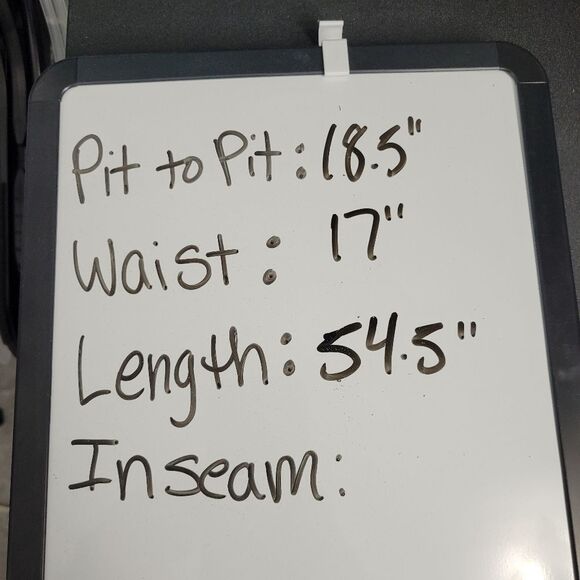 Pit to Pit: 18.5"
Waist: 17"
Length: 54.5"
Inseam: